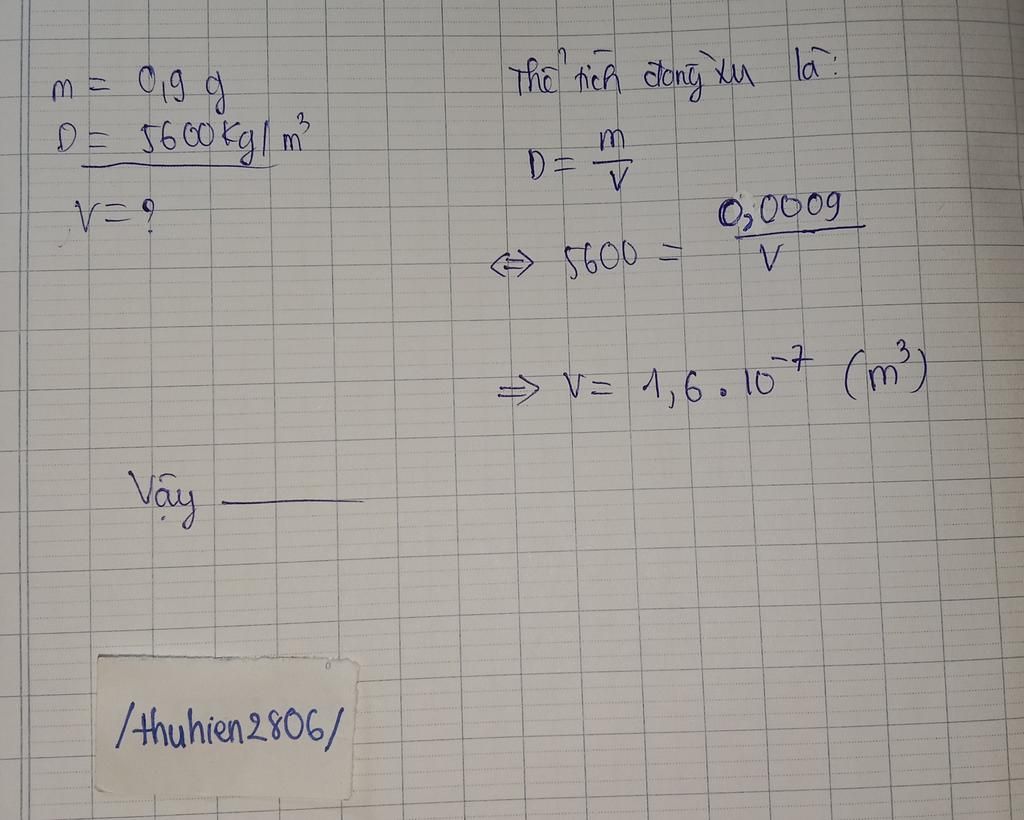 m = 0,9 g
D = 5600 Kg/m³
V = ?
Thể tích đồng xu là:
D = m/V
⇔ 5600 = 0,0009/V
⇒ V = 1,6 . 10⁻⁷ (m³)
Vậy
/thuhien2806/